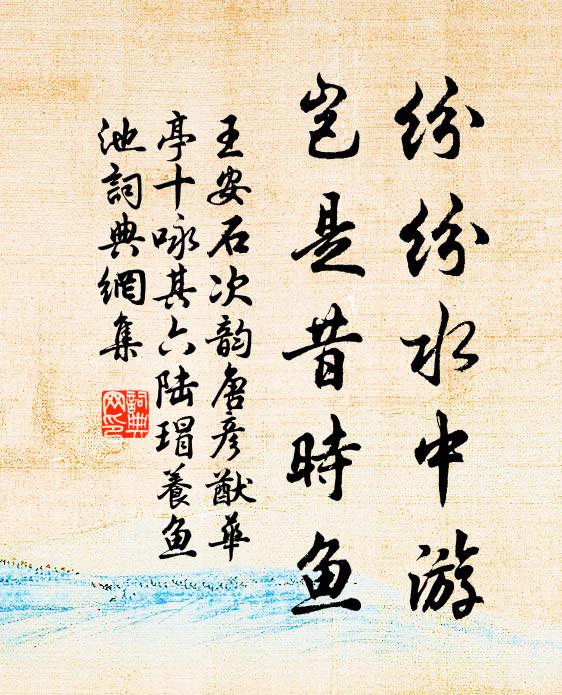 纷纷水中游
岂是昔時鱼
王安石次韵唐彦猷華
亭十咏其六陆瑁養鱼
池詞典網集
詞典
网印